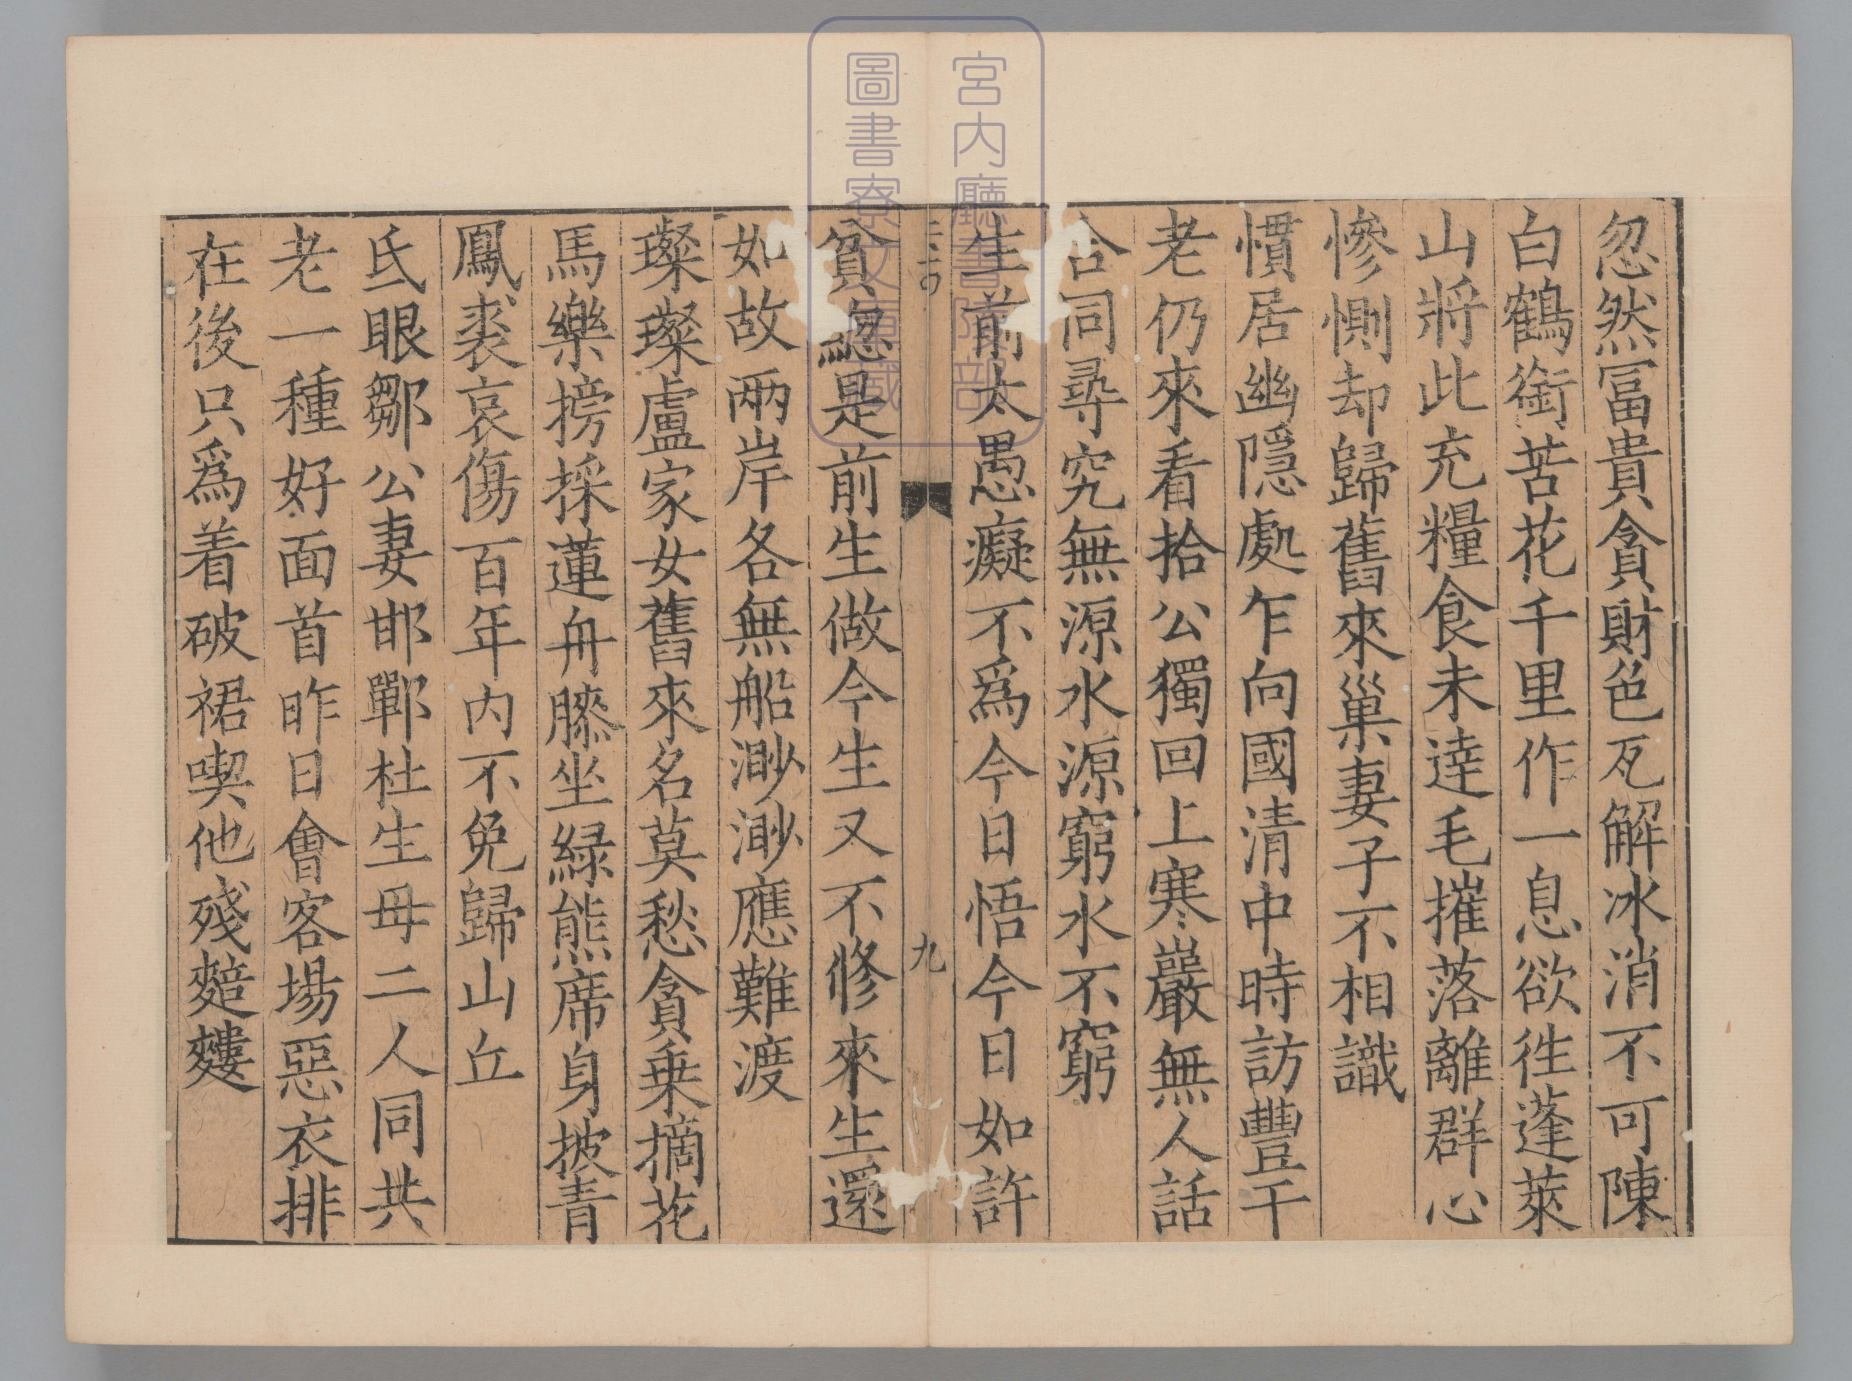 忽然冨貴貪財色瓦解冰消不可陳
白鶴銜苦花千里作一息欲徃蓬萊
山將此充糧食未逹毛摧落離群心
慘惻却歸舊來巢妻子不相識
慣居幽隱處乍向國清中時訪豐干
老仍來看拾公獨回上寒巖無人話
合同尋究無源水源窮水不窮
生前太愚癡不爲今日悟今日如許
九
貧緫是前生做今生又不修來生還
如故兩岸各無船渺渺應難渡
璨璨盧家女舊來名莫愁貪乗摘花
馬樂搒採蓮舟膝坐綠熊席身披青
鳳裘哀傷百年内不免歸山丘
氐眼鄒公妻邯鄲杜生母二人同共
老一種好面首昨日會客場惡衣排
在後只爲着破裙喫他殘䴺䴹
宮内廳書陵部
圖書寮文庫藏